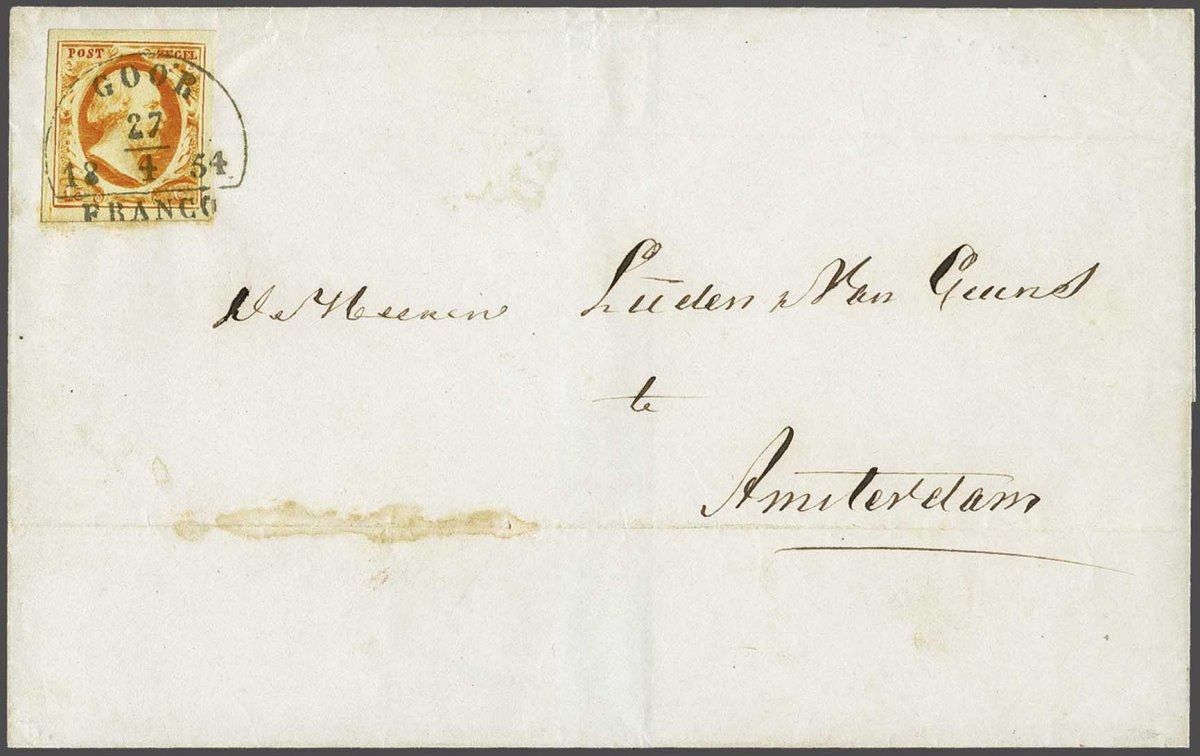 POST ZEGEL
GOOR
27
18 4 54
FRANCO
De Heeren Lüden & Van Geuns
te
Amsterdam